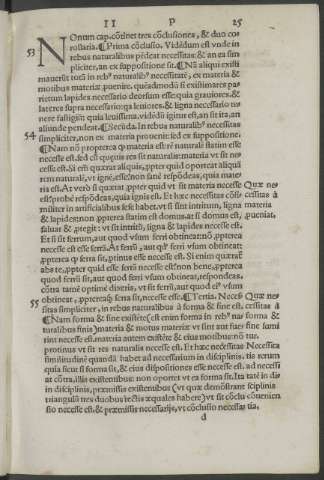 II P 25
53 NOnum cap. cōtinet tres cōclusiones, & duo co-
rollaria. ¶ Prima cōclusio. Vidēdum est vnde in
rebus naturalibus pēdeat necessitas: & an ea sim
pliciter, an ex suppositione sit. ¶ Nā aliqui existi
mauerūt totā in reb9 naturalib9 necessitatē, ex materia &
motibus materiæ puenire. quēadmodū si existimaret pa
rietum lapides necessario deorsum esse: quia grauiores, &
lateres supra necessario: qa leuiores, & ligna necessario te-
nere fastigiū: quia leuissima. vidēdū igitur est, an sit ita, an
54 aliunde pendeat. ¶ Secūda. In rebus naturalib9 necessitas
simpliciter, non ex materia prouenit: sed ex suppositione.
¶ Nam nō propterea q materia est rē naturalē statim esse
necesse est. sed est quouis res sit naturalis: materia vt sit ne-
cesse est. Si em̄ quæras aliquis, ppter quid oporteat aliquā
rem naturalē, vt ignē, esse: non sanè respōdeas, quia mate-
ria est. At verò si quærat ppter quid vt sit materia necesse
est: probè respōdeas, quia ignis est. Et hæc necessitas cōsi-
militer in artificialibus sese habet. vt si sint intritum, ligna
& lapides: non ppterea statim est domus. at si domus est,
saluas & ptegit: vt sit intritū, ligna & lapides necesse est.
Et si sit ferrum, aut quod vsum ferri obtineat: nō ppterea
necesse est esse serrā. At serrā, aut qd serri vsum obtineat:
ppterea q serra sit, prius esse necesse est. Si enim quærat
abs te, ppter quid esse serrā necesse est: non bene, ppterea
quod serrū sit, aut quod serri vsum obtineat, respondeas.
cōtra tamē optimè dixeris, vt sit serrū, aut quod ei9 vsum
55 obtineat, ppterea q serra sit, necesse esse. ¶ Tertia. Necess
sitas simpliciter, in rebus naturalibus à forma & fine est.
¶ Nam forma & fine existēte (est enim forma in reb9 na
turalibus finis) materia & motus materiæ vt sint aut fue
rint necesse est. materia autem existēte & eius motibus: nō
protinus vt sit res naturalis necesse est. Et hæc necessitas
similitudinē quandā habet ad necessarium in disciplinis.
quia sicut si forma sit, & eius dispositiones esse necesse est.
at cōtra, illis existentibus: non oportet vt ea forma sit. Ita
in disciplinis, præmissis existentibus (vt quæ demōstrant
triangulū tres duobus rectis æquales habere) vt sit cōclu
sio necesse est, & præmissis necessarijs, vt cōclusio necessa
Quæ ne-
cessitas à
materia
pueniat.
Quæ ne-
cessitas à
forma &
fine sumi
tur.
Necessita
tis rerum
ad necessi
tatē in di
sciplinis
conueniē
tia.
d